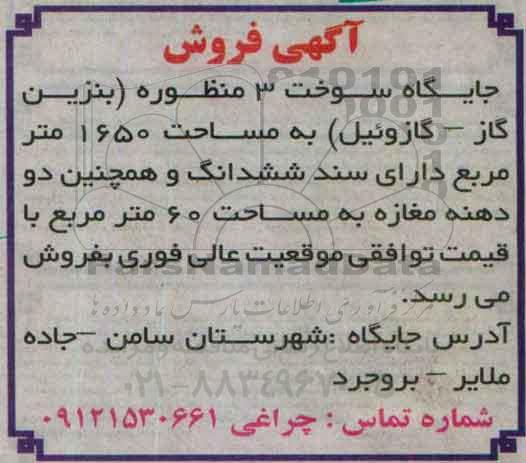 آگهی فروش
جایگاه سوخت ۳ منظوره (بنزین
گاز – گازوئیل) به مساحت ۱۶۵۰ متر
مربع دارای سند ششدانگ و همچنین دو
دهنه مغازه به مساحت ۶۰ متر مربع با
قیمت توافقی موقعیت عالی فوری بفروش
می رسد.
آدرس جایگاه :شهرستان سامن –جاده
ملایر – بروجرد
شماره تماس : چراغی ۰۹۱۲۱۵۳۰۶۶۱
ParsNamadData
مرکز فرآوری اطلاعات پارس نماد داده ها